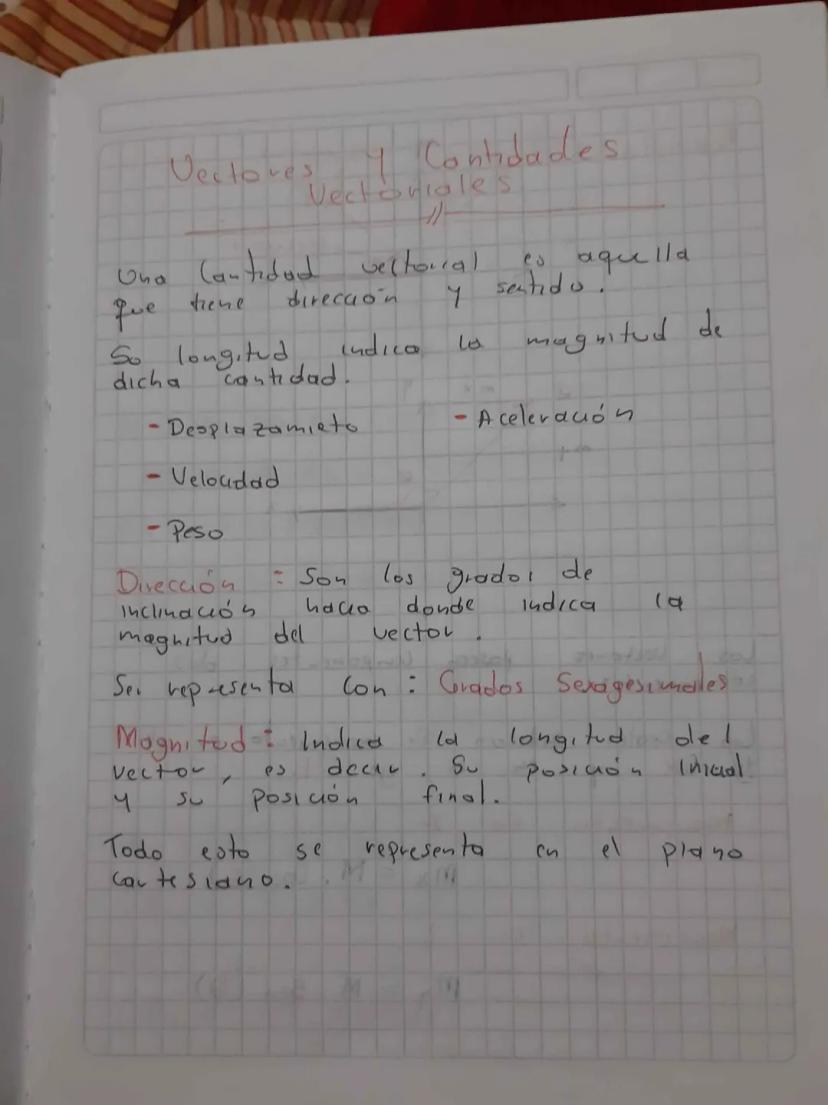 Vectores y Cantidades
Vectoriales
Una Cantidad vectorial es aquella
que tiene dirección y sentido.
Su longitud indica la magnitud de
dicha cantidad.
- Desplazamieto - Aceleración
- Velocidad
- Peso
Dirección : Son los grados de
inclinación hacia donde indica la
magnitud del vector.
Se representa con : Grados Sexagesimales
Magnitud : Indica la longitud del
vector, es decir. Su posición inicial
y su posición final.
Todo esto se representa en el plano
cartesiano.